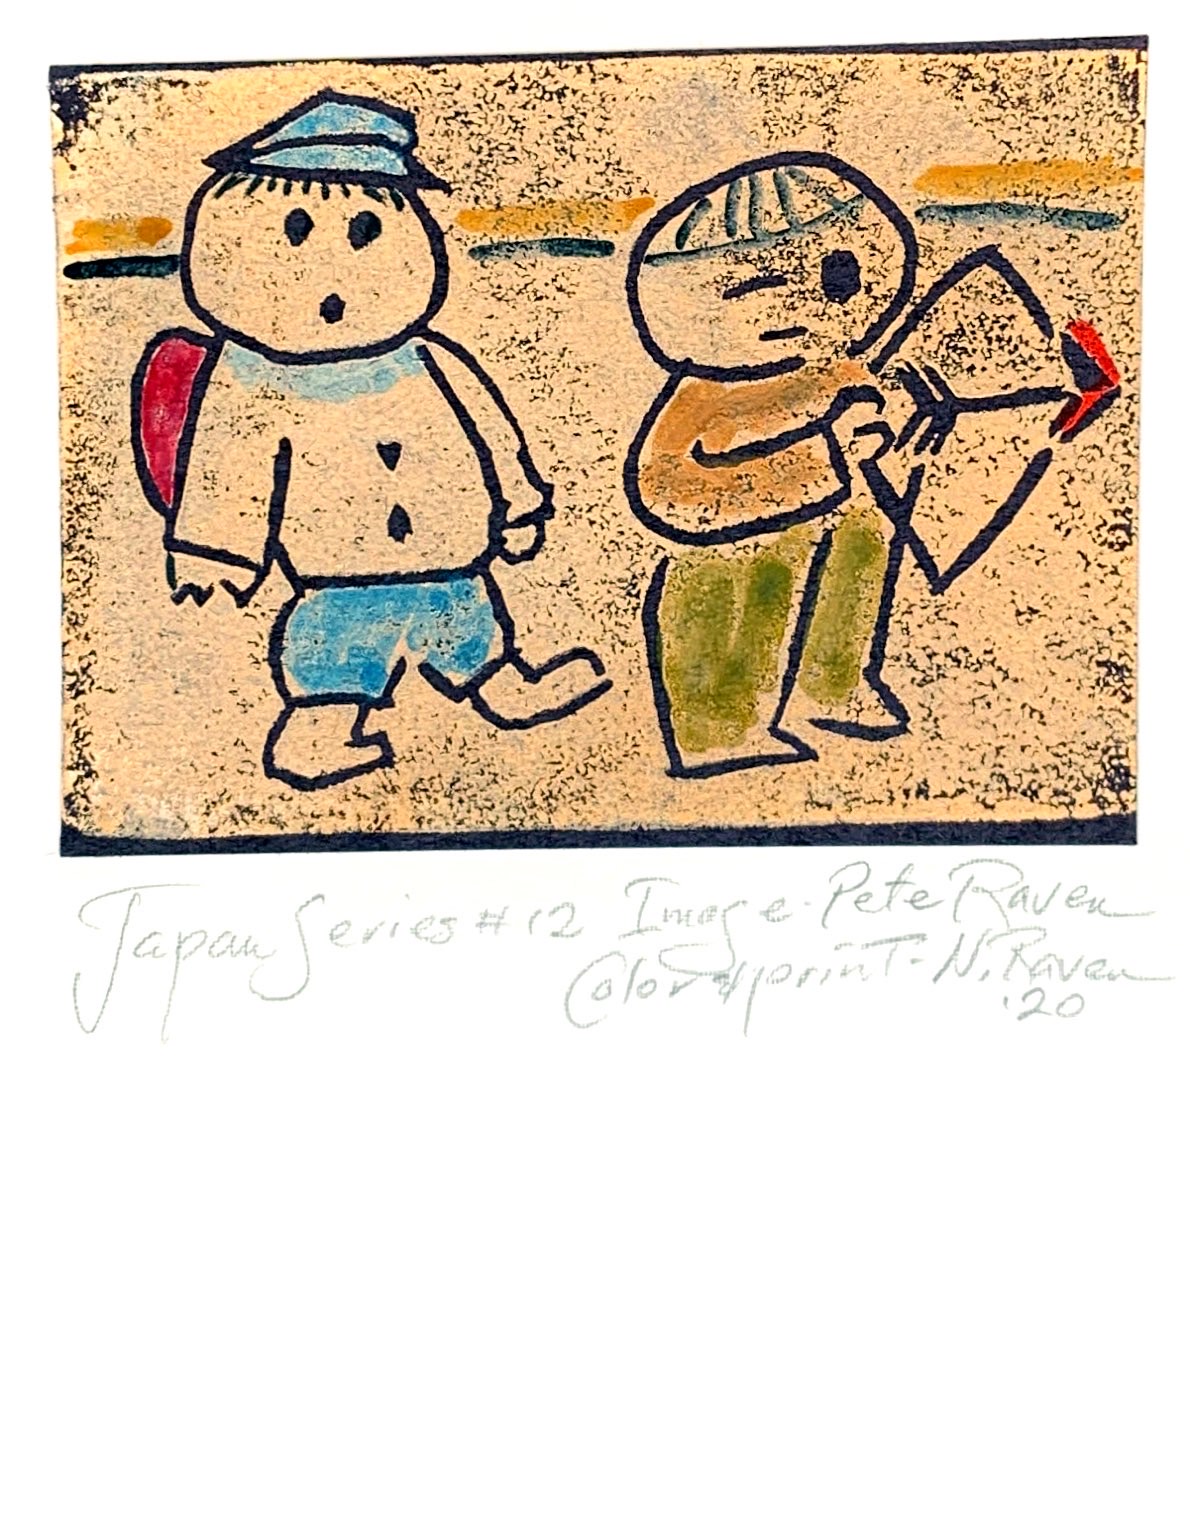 Japan Series #12 Image - Pete Raven
Color & print - N. Raven
'20